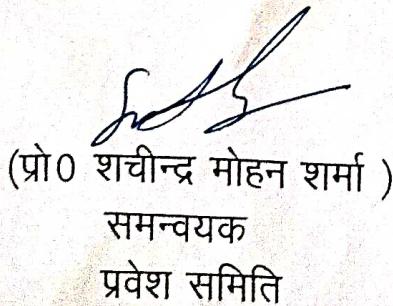 (प्रो0 शचीन्द्र मोहन शर्मा )
समन्वयक
प्रवेश समिति